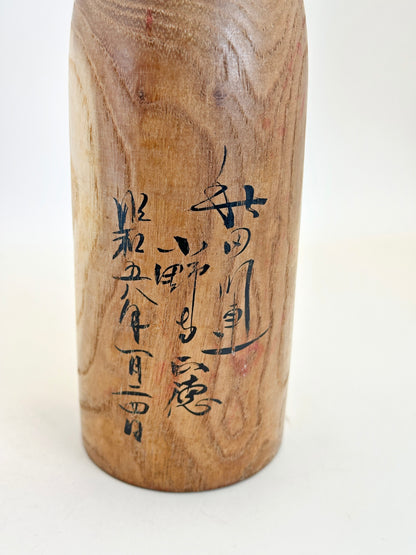 秋田川連
小野寺正徳
昭和五八年一月二四日